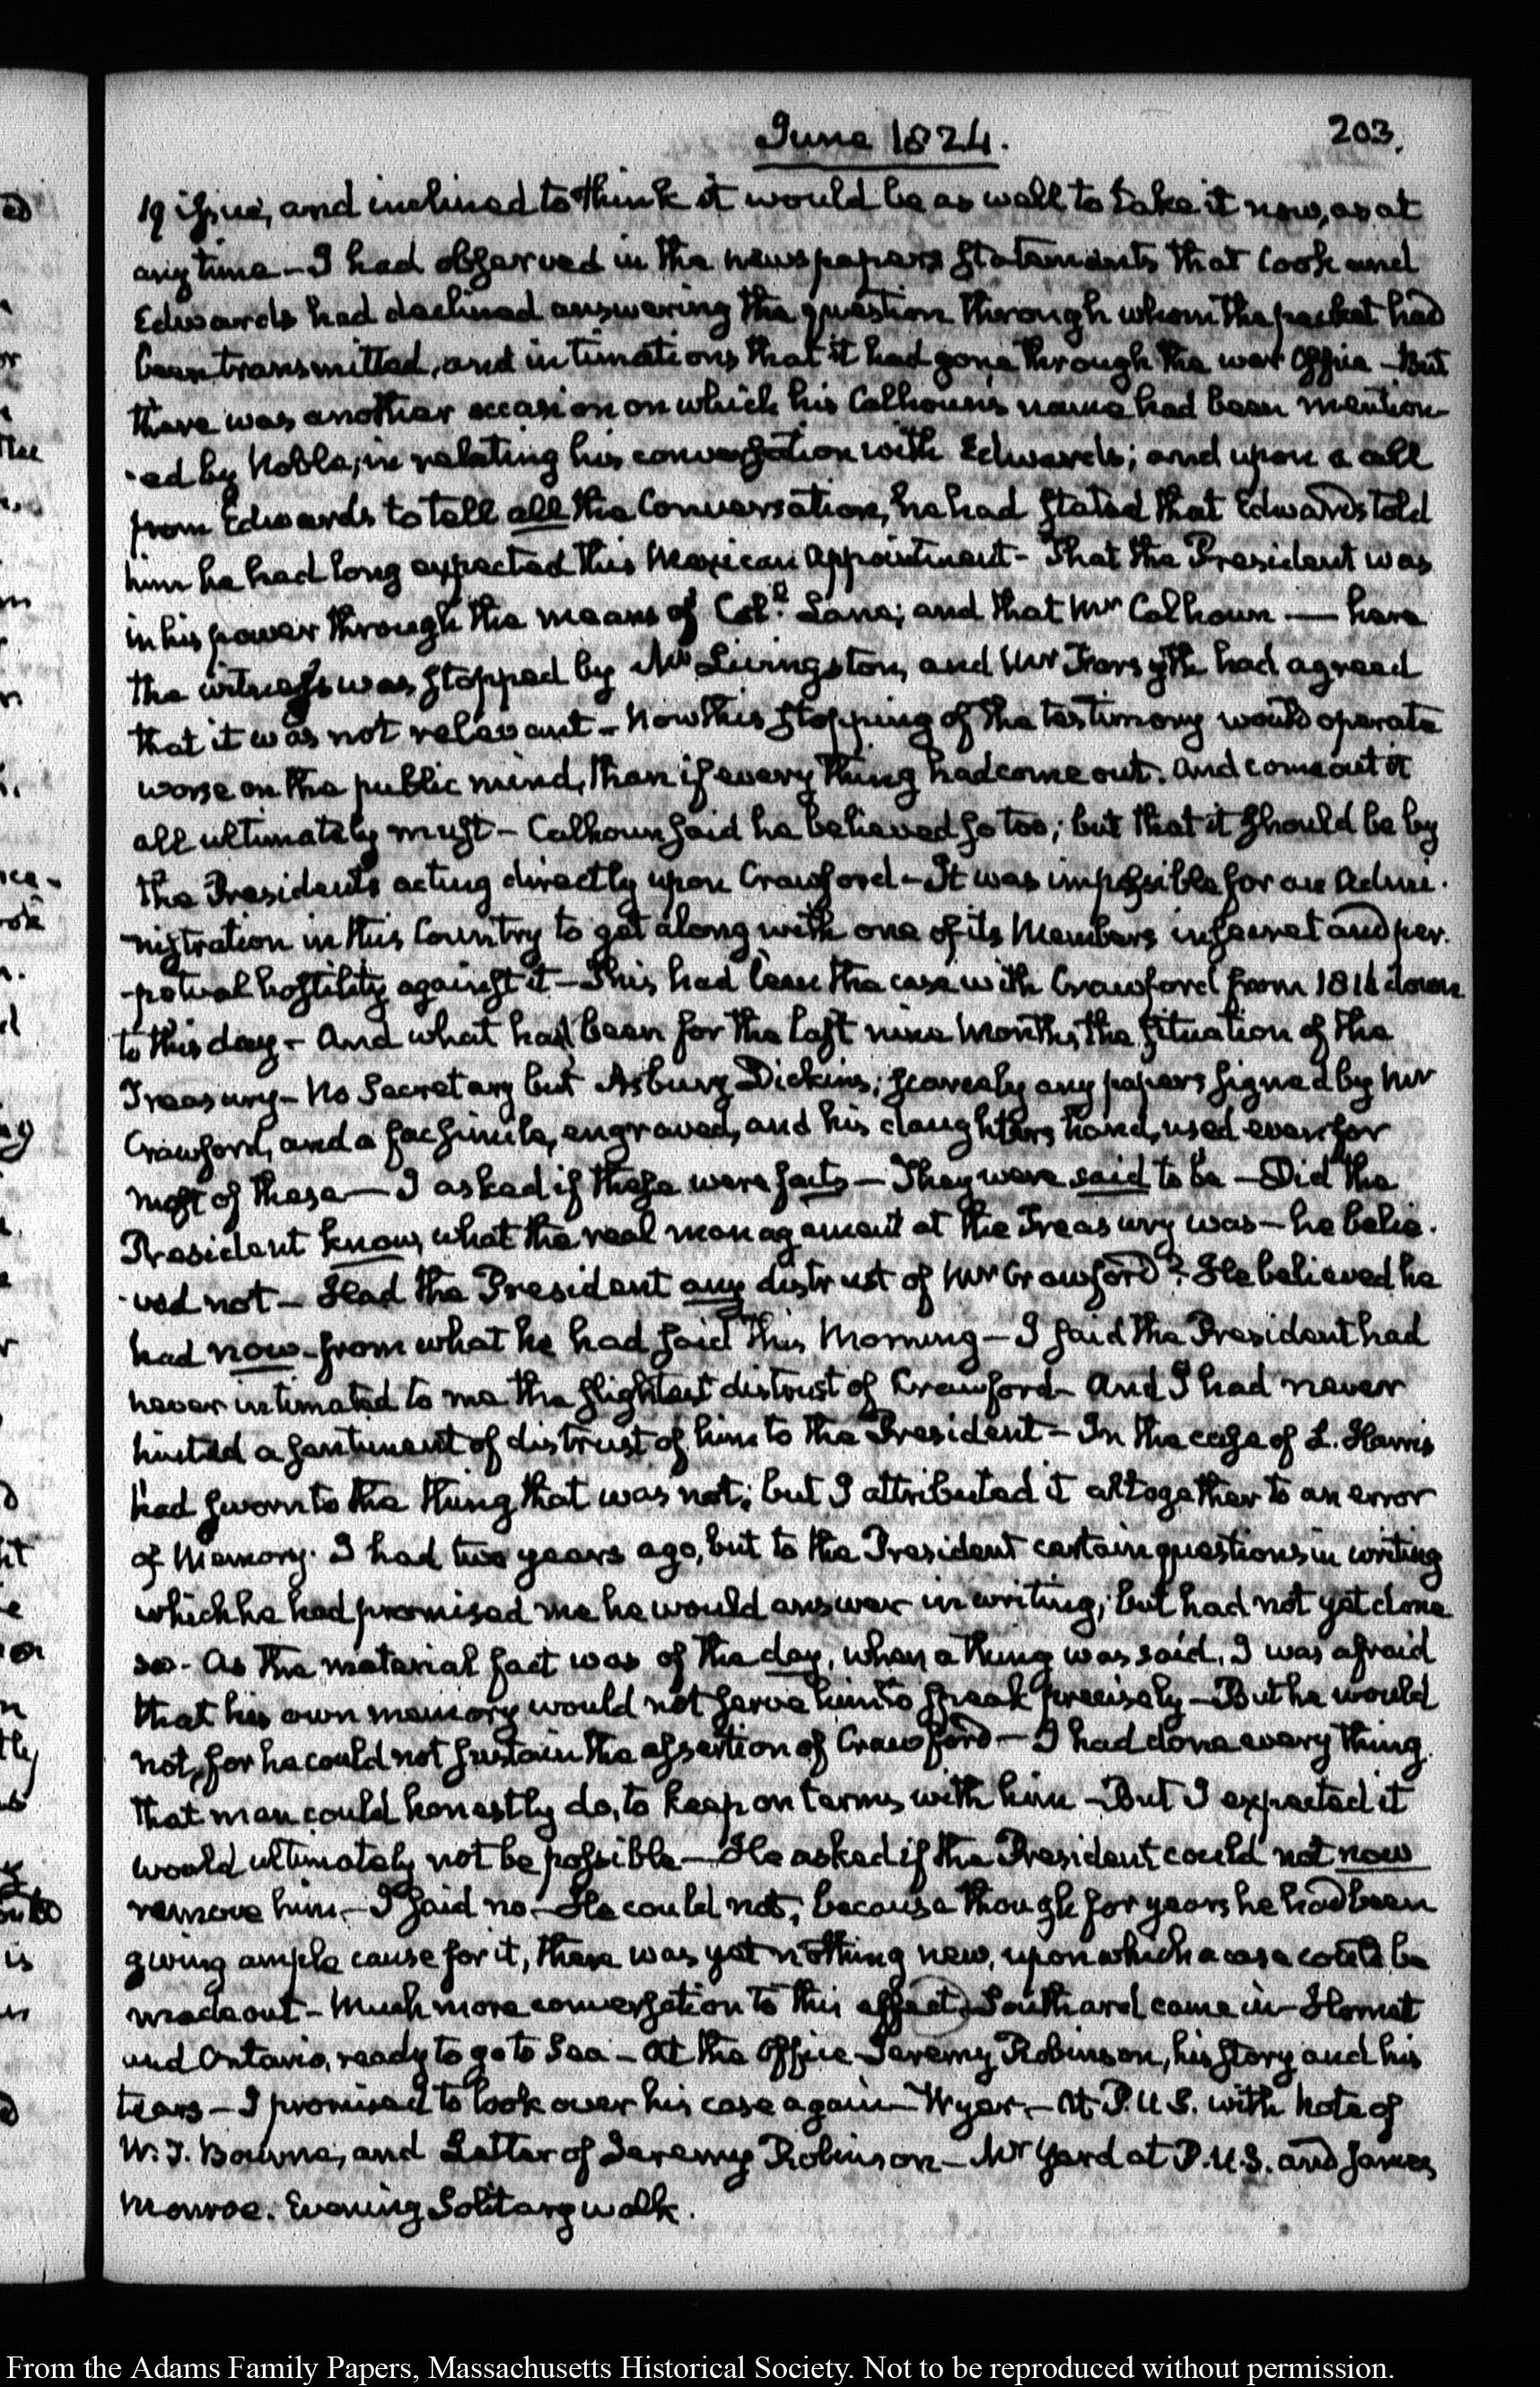 June 1824.
203.
19 issue, and inclined to think it would be as well to take it now, as at
any time – I had observed in the newspapers statements that Cook and
Edwards had declined answering the question through whom the packet had
been transmitted, and intimations that it had gone through the war Office – But
there was another occasion on which his Calhoun's name had been mention-
-ed by Noble, in relating his conversation with Edwards; and upon a call
from Edwards to tell all the Conversation, he had stated that Edwards told
him he had long expected this Mexican Appointment – That the President was
in his power through the means of Col.l Lane; and that Mr Calhoun — here
the witness was stopped by Mr Livingston, and Mr Forsyth had agreed
that it was not relevant – Now this stopping of the testimony would operate
worse on the public mind, than if every thing had come out. And come out it
all ultimately must – Calhoun said he believed so too; but that it should be by
the Presidents acting directly upon Crawford – It was impossible for an Admi-
-nistration in this Country to get along with one of its Members in secret and per-
-petual hostility against it – This had been the case with Crawford from 1816 down
to this day – And what had been for the last nine Months the situation of the
Treasury – No Secretary but Asbury Dickins; scarcely any papers signed by Mr
Crawford, and a facsimile, engraved, and his daughters hand, used even for
most of these — I asked if these were facts – They were said to be – Did the
President know, what the real management at the Treasury was – he belie-
-ved not – Had the President any distrust of Mr Crawford? He believed he
had now – from what he had said this Morning – I said the President had
never intimated to me the slightest distrust of Crawford – And I had never
hinted a sentiment of distrust of him to the President – In the case of L. Harris
had sworn to the thing that was not; but I attributed it altogether to an error
of Memory. I had two years ago, put to the President certain questions in writing
which he had promised me he would answer in writing; but had not yet done
so. As the material fact was of the day, when a thing was said, I was afraid
that his own memory would not serve him to speak precisely – But he would
not, for he could not sustain the assertion of Crawford – I had done every thing
that man could honestly do, to keep on terms with him – But I expected it
would ultimately not be possible – He asked if the President could not now
remove him – I said no – He could not; because though for years he had been
giving ample cause for it, there was yet nothing new, upon which a case could be
made out – Much more conversation to this effect. Southard came in – Hornet
and Ontario, ready to go to Sea – At the Office – Jeremy Robinson, his story and his
tears – I promised to look over his case again – Wyer – At P.U.S. with Note of
W. J. Bourne, and Letter of Jeremy Robinson – Mr Yard at P.U.S. and James
Monroe. Evening Solitary walk.
From the Adams Family Papers, Massachusetts Historical Society. Not to be reproduced without permission.